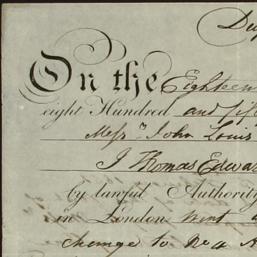 On the Eighteen
eight Hundred and fif
Messrs John Louis
I Thomas Edwa
by lawful Authority
in London went
change to